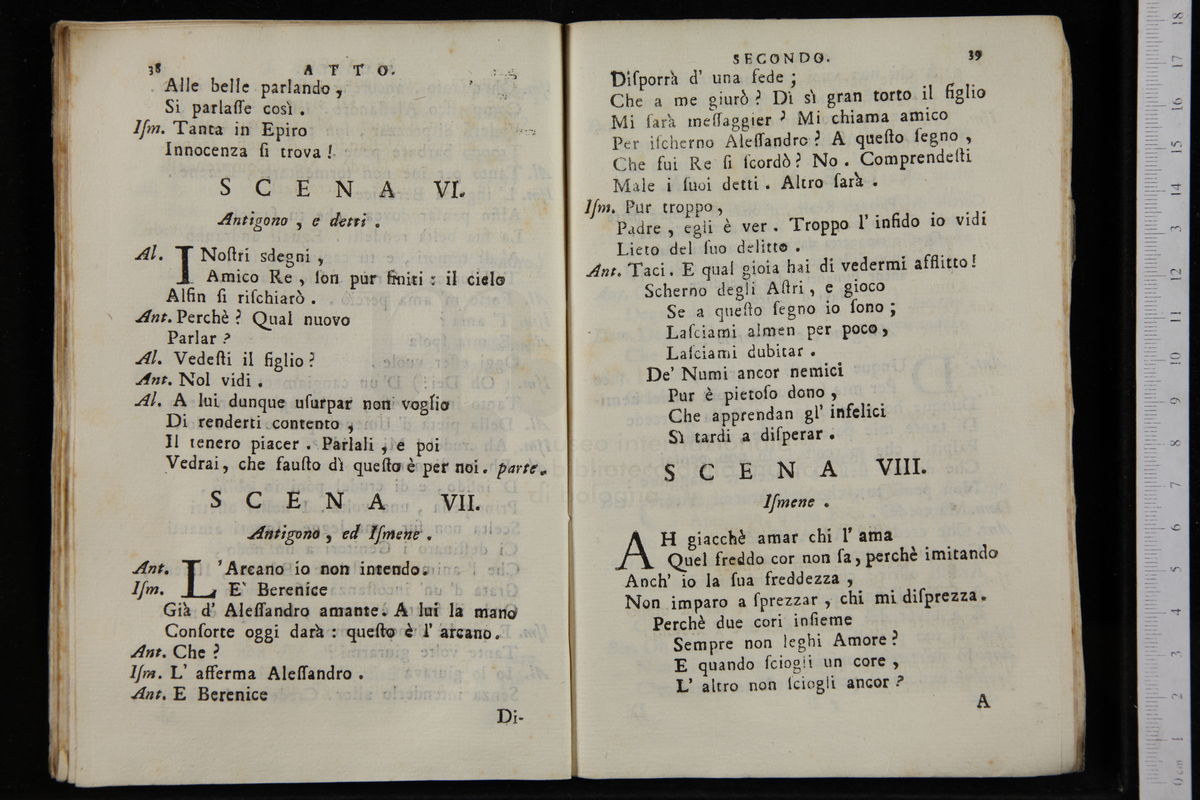 38 ATTO.
Alle belle parlando,
Si parlaſſe così.
Iſm. Tanta in Epiro
Innocenza ſi trova!
SCENA VI.
Antigono, e detti.
Al. INoſtri sdegni,
Amico Re, ſon pur finiti: il cielo
Alfin ſi riſchiarò.
Ant. Perchè? Qual nuovo
Parlar?
Al. Vedeſti il figlio?
Ant. Nol vidi.
Al. A lui dunque uſurpar non voglio
Di renderti contento,
Il tenero piacer. Parlali, e poi
Vedrai, che fauſto dì queſto è per noi. parte.
SCENA VII.
Antigono, ed Iſmene.
Ant. L'Arcano io non intendo.
Iſm. E' Berenice
Già d' Aleſſandro amante. A lui la mano
Conſorte oggi darà: queſto è l' arcano.
Ant. Che?
Iſm. L' afferma Aleſſandro.
Ant. E Berenice
Di-
SECONDO. 39
Diſporrà d' una fede;
Che a me giurò? Di sì gran torto il figlio
Mi ſarà meſſaggier? Mi chiama amico
Per iſcherno Aleſſandro? A queſto ſegno,
Che fui Re ſi ſcordò? No. Comprendeſti
Male i ſuoi detti. Altro ſarà.
Iſm. Pur troppo,
Padre, egli è ver. Troppo l' infido io vidi
Lieto del ſuo delitto.
Ant. Taci. E qual gioia hai di vedermi afflitto!
Scherno degli Aſtri, e gioco
Se a queſto ſegno io ſono;
Laſciami almen per poco,
Laſciami dubitar.
De' Numi ancor nemici
Pur è pietoſo dono,
Che apprendan gl' infelici
Sì tardi a diſperar.
SCENA VIII.
Iſmene.
AH giacchè amar chi l' ama
Quel freddo cor non ſa, perchè imitando
Anch' io la ſua freddezza,
Non imparo a ſprezzar, chi mi diſprezza.
Perchè due cori inſieme
Sempre non leghi Amore?
E quando ſciogli un core,
L' altro non ſciogli ancor?
A